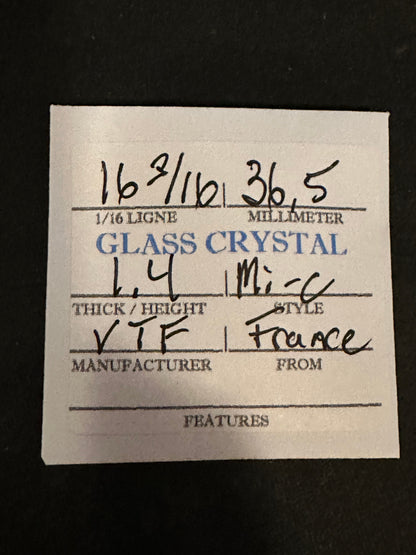 16 3/16 36,5
1/16 LIGNE MILLIMETER
GLASS CRYSTAL
1.4 Mi-C
THICK / HEIGHT STYLE
VTF France
MANUFACTURER FROM
FEATURES